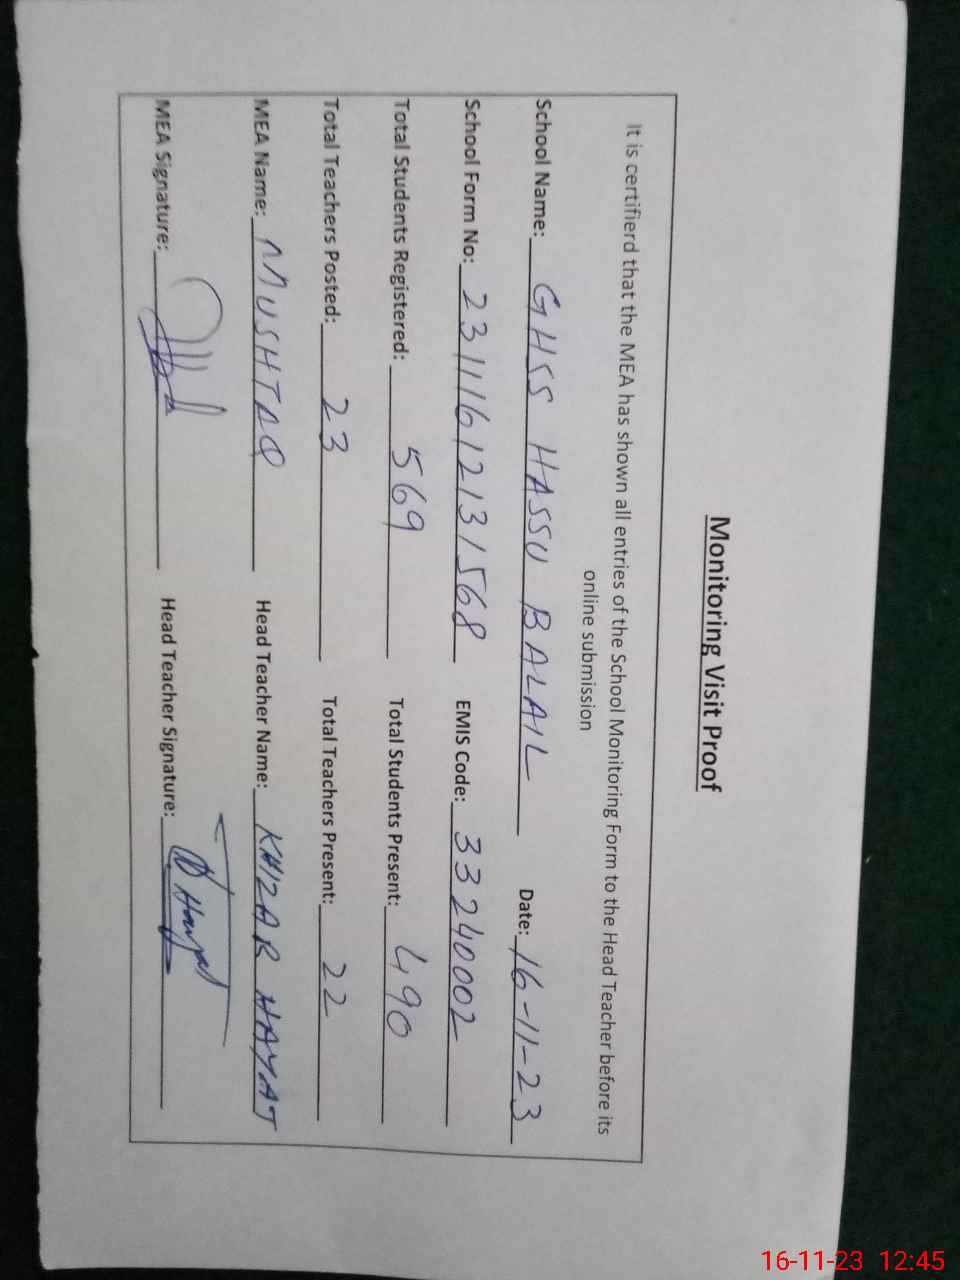 Monitoring Visit Proof
It is certifierd that the MEA has shown all entries of the School Monitoring Form to the Head Teacher before its
online submission
School Name: GHSS HASSU BALAIL Date: 16-11-23
School Form No: 23111612131568 EMIS Code: 33240002
Total Students Registered: 569 Total Students Present: 490
Total Teachers Posted: 23 Total Teachers Present: 22
MEA Name: MUSHTAQ Head Teacher Name: KHIZAR HAYAT
MEA Signature: Head Teacher Signature:
16-11-23 12:45